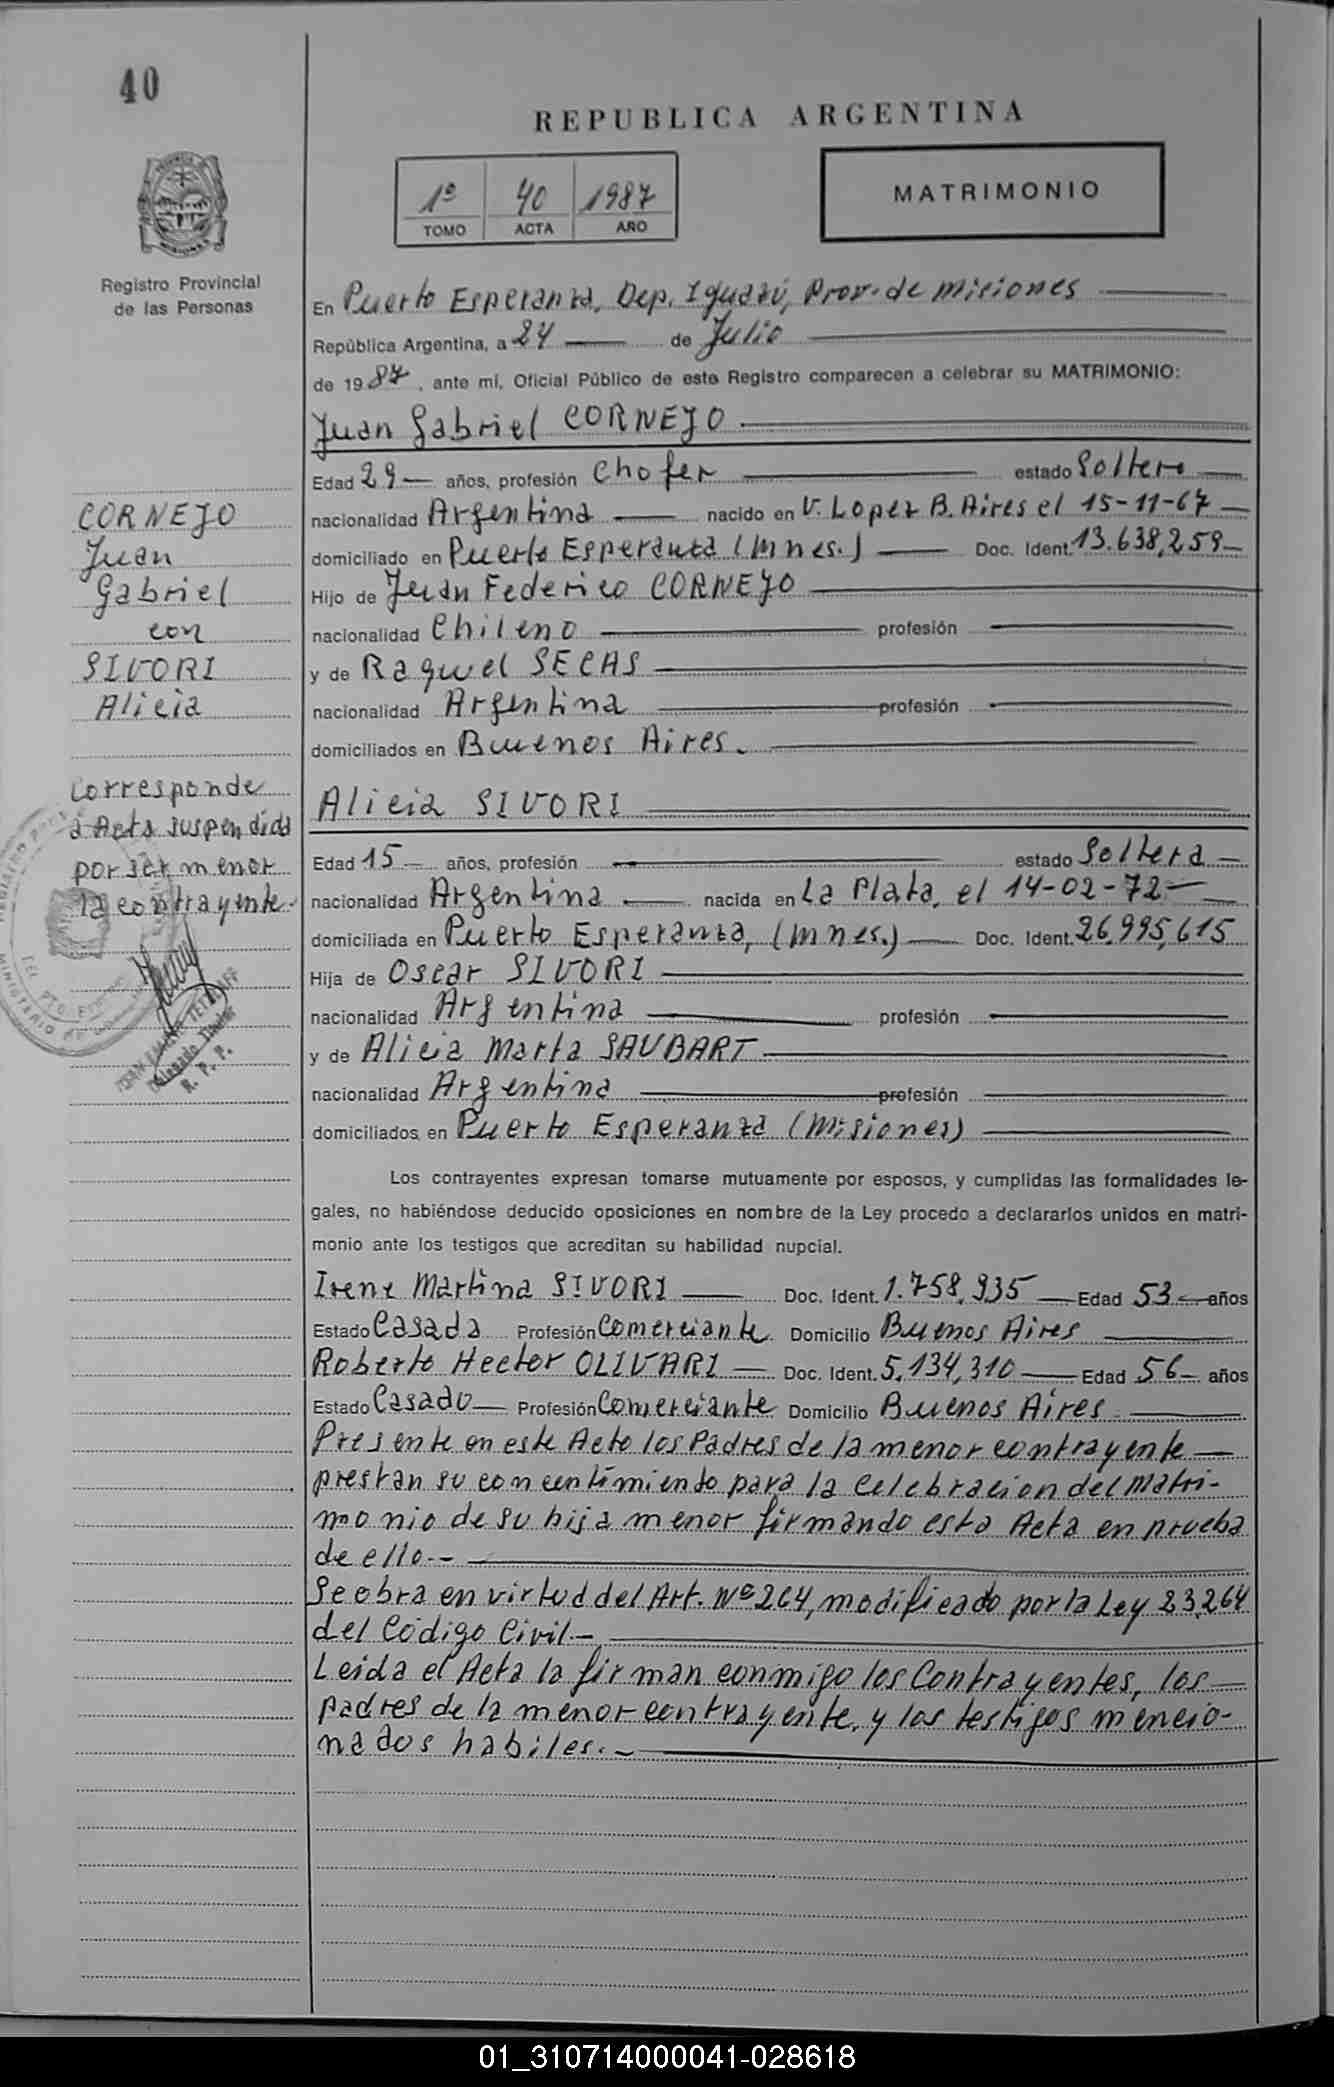 40
REPUBLICA ARGENTINA
1º 40 1987
TOMO ACTA AÑO
MATRIMONIO
Registro Provincial
de las Personas
En Puerto Esperanza, Dep. Iguazú, Prov. de Misiones
República Argentina, a 24 de Julio
de 1987, ante mí, Oficial Público de este Registro comparecen a celebrar su MATRIMONIO:
Juan Gabriel CORNEJO
Edad 29 años, profesión Chofer estado Soltero
nacionalidad Argentina nacido en V. Lopez B. Aires el 15-11-67
domiciliado en Puerto Esperanza (Mnes.) Doc. Ident. 13.638.259
Hijo de Juan Federico CORNEJO
nacionalidad Chileno profesión
y de Raquel SECAS
nacionalidad Argentina profesión
domiciliados en Buenos Aires.
CORNEJO
Juan
Gabriel
con
SIVORI
Alicia
Corresponde
a Acta suspendida
por ser menor
la contrayente.-
Delegado Titular
R. P. P.
Alicia SIVORI
Edad 15 años, profesión estado Soltera
nacionalidad Argentina nacida en La Plata, el 14-02-72
domiciliada en Puerto Esperanza, (Mnes.) Doc. Ident. 26,995,615
Hija de Oscar SIVORI
nacionalidad Argentina profesión
y de Alicia Marta SAUBART
nacionalidad Argentina profesión
domiciliados en Puerto Esperanza (Misiones)
Los contrayentes expresan tomarse mutuamente por esposos, y cumplidas las formalidades le-
gales, no habiéndose deducido oposiciones en nombre de la Ley procedo a declararlos unidos en matri-
monio ante los testigos que acreditan su habilidad nupcial.
Irene Martina SIVORI Doc. Ident. 1.758.935 Edad 53 años
Estado Casada Profesión Comerciante Domicilio Buenos Aires
Roberto Hector OLIVARI Doc. Ident. 5,134,310 Edad 56 años
Estado Casado Profesión Comerciante Domicilio Buenos Aires
Presente en este Acto los Padres de la menor contrayente
prestan su concentimiento para la celebracion del Matri-
monio de su hija menor firmando esta Acta en prueba
de ello.-
Se obra en virtud del Art. Nº 264, modificado por la Ley 23.264
del Código Civil.-
Leida el Acta la firman conmigo los Contrayentes, los
padres de la menor contrayente, y los testigos mencio-
nados habiles.-
01_310714000041-028618